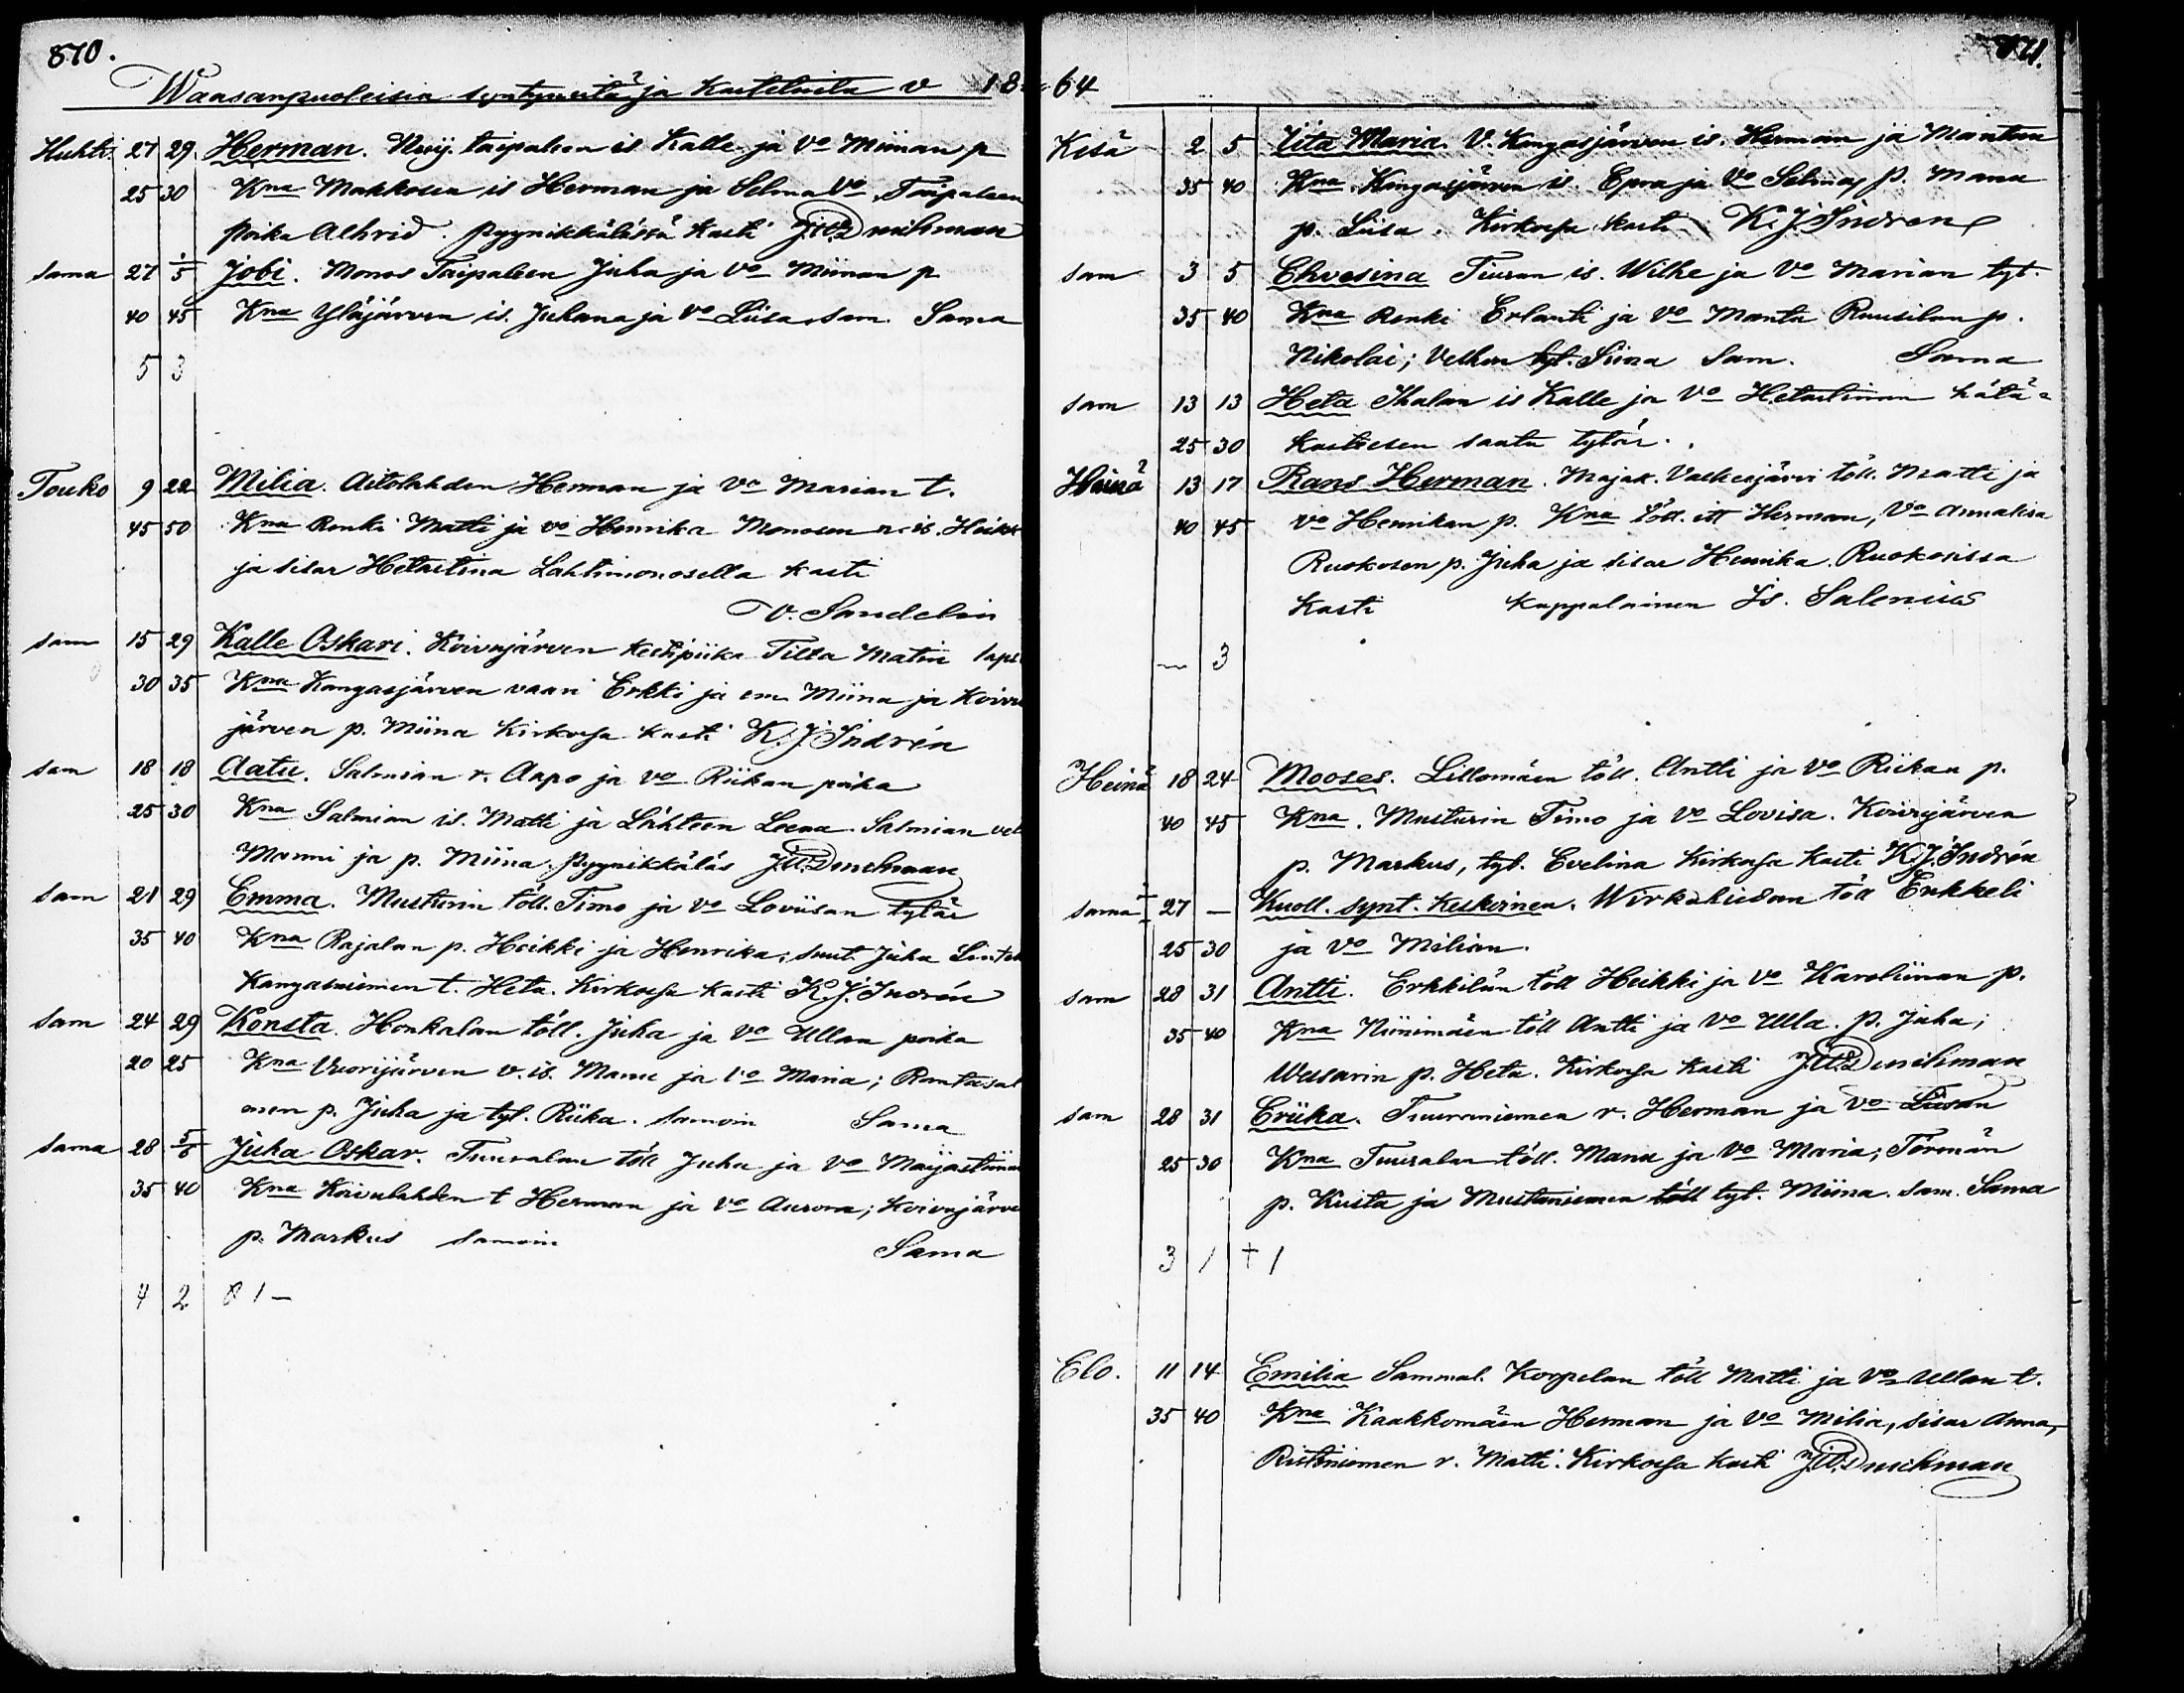 870.
Waasanpuoleisia syntyneitä ja Kastetuita v 18
Huhti. 27 29 Herman. taipaleen is Kalle ja Vo Miinan p
25 30 Kna Makkosen is Herman ja Selma Vo Taipaleen
poika Alhrid. Pyynikkälässä Kasti
sama 27 1/5 Jobi. Monos Taipaleen Juha ja Vo Miinan p
40 45 Kna Yläjärven is. Juhana ja Vo Liisa sam. Sama
5 3
Touko 9 22 Milia. Aitolahden Herman ja Vo Marian t.
45 50 Kna Renki Matti ja vo Henrika Monosen is. Heikk
ja sisar Hetastina Lahtimonosella kasti
V. Sandelin
sam 15 29 Kalle Oskari. Koivujärven Tilta Matin laps
30 35 Kna Kangasjärven vaari Erkki ja em Miina ja Koivu
järven p. Miina Kirkossa kasti K. J. Indrén
sam 18 18 Aatu. Salmian r. Aapo ja vo Riikan poika
25 30 Kna Salmian is. Matti ja Lähteen Leena. Salmian vel
Manni ja p. Miina. Pyynikkäläs
sam 21 29 Emma. Musturin töll. Timo ja vo Loviisan tytär
35 40 Kna Rajalan p. Heikki ja Henrika; suut. Juha
Kangasniemen t. Heta. Kirkossa kasti K. J. Indrén
sam 24 29 Konsta. Honkalan töll. Juha ja vo Ullan poika
20 25 Kna Vuorijärven v. is. Manu ja vo Maria; Rantasal
men p. Juha ja tyt. Riika. samoin Sama
sama 28 5/6 Juha Oskar. Tuuralan töll Juha ja vo Maijastiinan
35 40 Kna Koivulahden t Herman ja vo Aurora; Koivujärve
p. Markus samoin Sama
4 2 1 –
871.
64
Kesä 2 5 Iita Maria. V. Kangasjärven is. Herman ja Mantan
35 40 Kna. Kangasjärven is. Epra ja Vo Selma, p. Manu
p. Liisa. Kirkossa kasti K. J. Indren
sam 3 5 Ehvosina Tiuran is. Wilhe ja Vo Marian tyt.
35 40 Kna Renki Erlanti ja vo Manta Ruusilan p.
Nikolai; Velhon tyt. Siina Sam. Sama
sam 13 13 Heta Ihalan is Kalle ja Vo Hetastiinan hätä=
25 30 kasteesen saatu tytär.
Heinä 13 17 Frans Herman. Majak. Valkeisjärvi töll. Matti ja
40 45 vo Henrikan p. Kna töll. itt Herman, Vo Annaliisa
Ruokosen p. Juha ja sisar Henrika. Ruokosissa
Kasti Kappalainen Is. Salenius
— 3
Heinä 18 24 Mooses. Lillomäen töll. Antti ja vo Riikan p.
40 45 Kna. Musturin Timo ja vo Lovisa. Koivujärven
p. Markus, tyt. Evelina Kirkossa kasti K. J. Indrén
sama 27 – Kuoll. synt. Keskinen. töll Erkkeli
25 30 ja vo Milian.
sam 28 31 Antti. Erkkilän töll Heikki ja vo Karoliinan p.
35 40 Kna Niinimäen töll Antti ja vo Ulla. p. Juha;
Wasarin p. Heta. Kirkossa kasti
sam 28 31 Eriika. Tuuraniemen r. Herman ja vo Liisan
25 30 Kna Tuuralan töll. Manu ja Vo Maria; Törmän
p. Kusta ja Mustaniemen töll tyt. Miina. sam. Sama
3 1 † 1
Elo. 11 14 Emilia Sammal. Korpelan töll Matti ja vo Ullan t.
35 40 Kna Kaakkomäen Herman ja vo Milia, sisar Anna,
Ristiniemen r. Matti. Kirkossa kasti